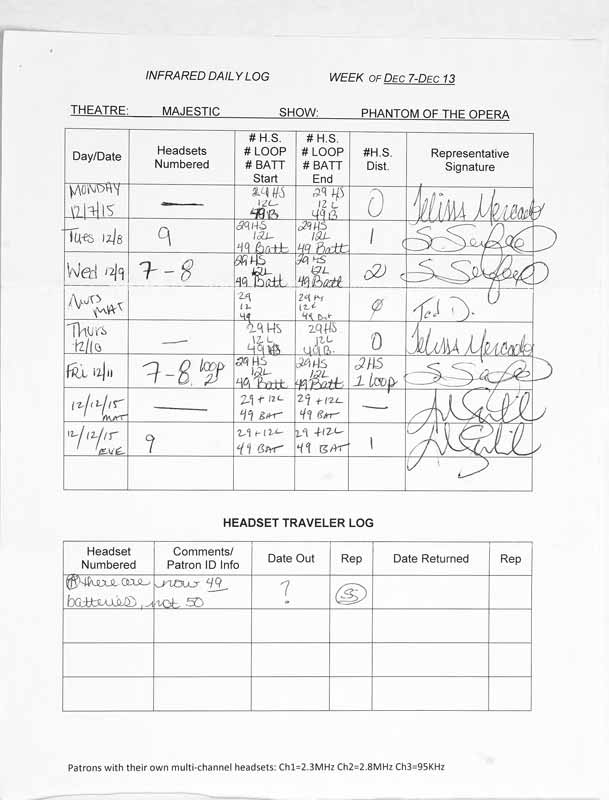 INFRARED DAILY LOG WEEK OF DEC 7-DEC 13
THEATRE: MAJESTIC SHOW: PHANTOM OF THE OPERA
Day/Date Headsets Numbered # H.S. # LOOP # BATT Start # H.S. # LOOP # BATT End #H.S. Dist. Representative Signature
MONDAY 12/7/15 — 29 HS 12L 49 B 29 HS 12 L 49 B 0 Mercado
Tues 12/8 9 29 HS 12L 49 Batt 29 HS 12L 49 Batt 1 S.
Wed 12/9 7-8 29 HS 12L 49 Batt 29 HS 12L 49 Batt 2 S.
MAT 29 12 49 29 12 49 0 Ted D.
Thurs 12/10 — 29 HS 12L 49 29 HS 12 L 49 B. 0 Mercado
Fri 12/11 7-8, loop 2 29 HS 12L 49 Batt 29 HS 12L 49 Batt 2 HS 1 loop S.
12/12/15 MAT — 29 + 12L 49 BAT 29 + 12L 49 BAT —
12/12/15 EVE 9 29 + 12L 49 BAT 29 + 12L 49 BAT 1
HEADSET TRAVELER LOG
Headset Numbered Comments/ Patron ID Info Date Out Rep Date Returned Rep
there are now 49 ? SS
batteries, not 50
Patrons with their own multi-channel headsets: Ch1=2.3MHz Ch2=2.8MHz Ch3=95KHz